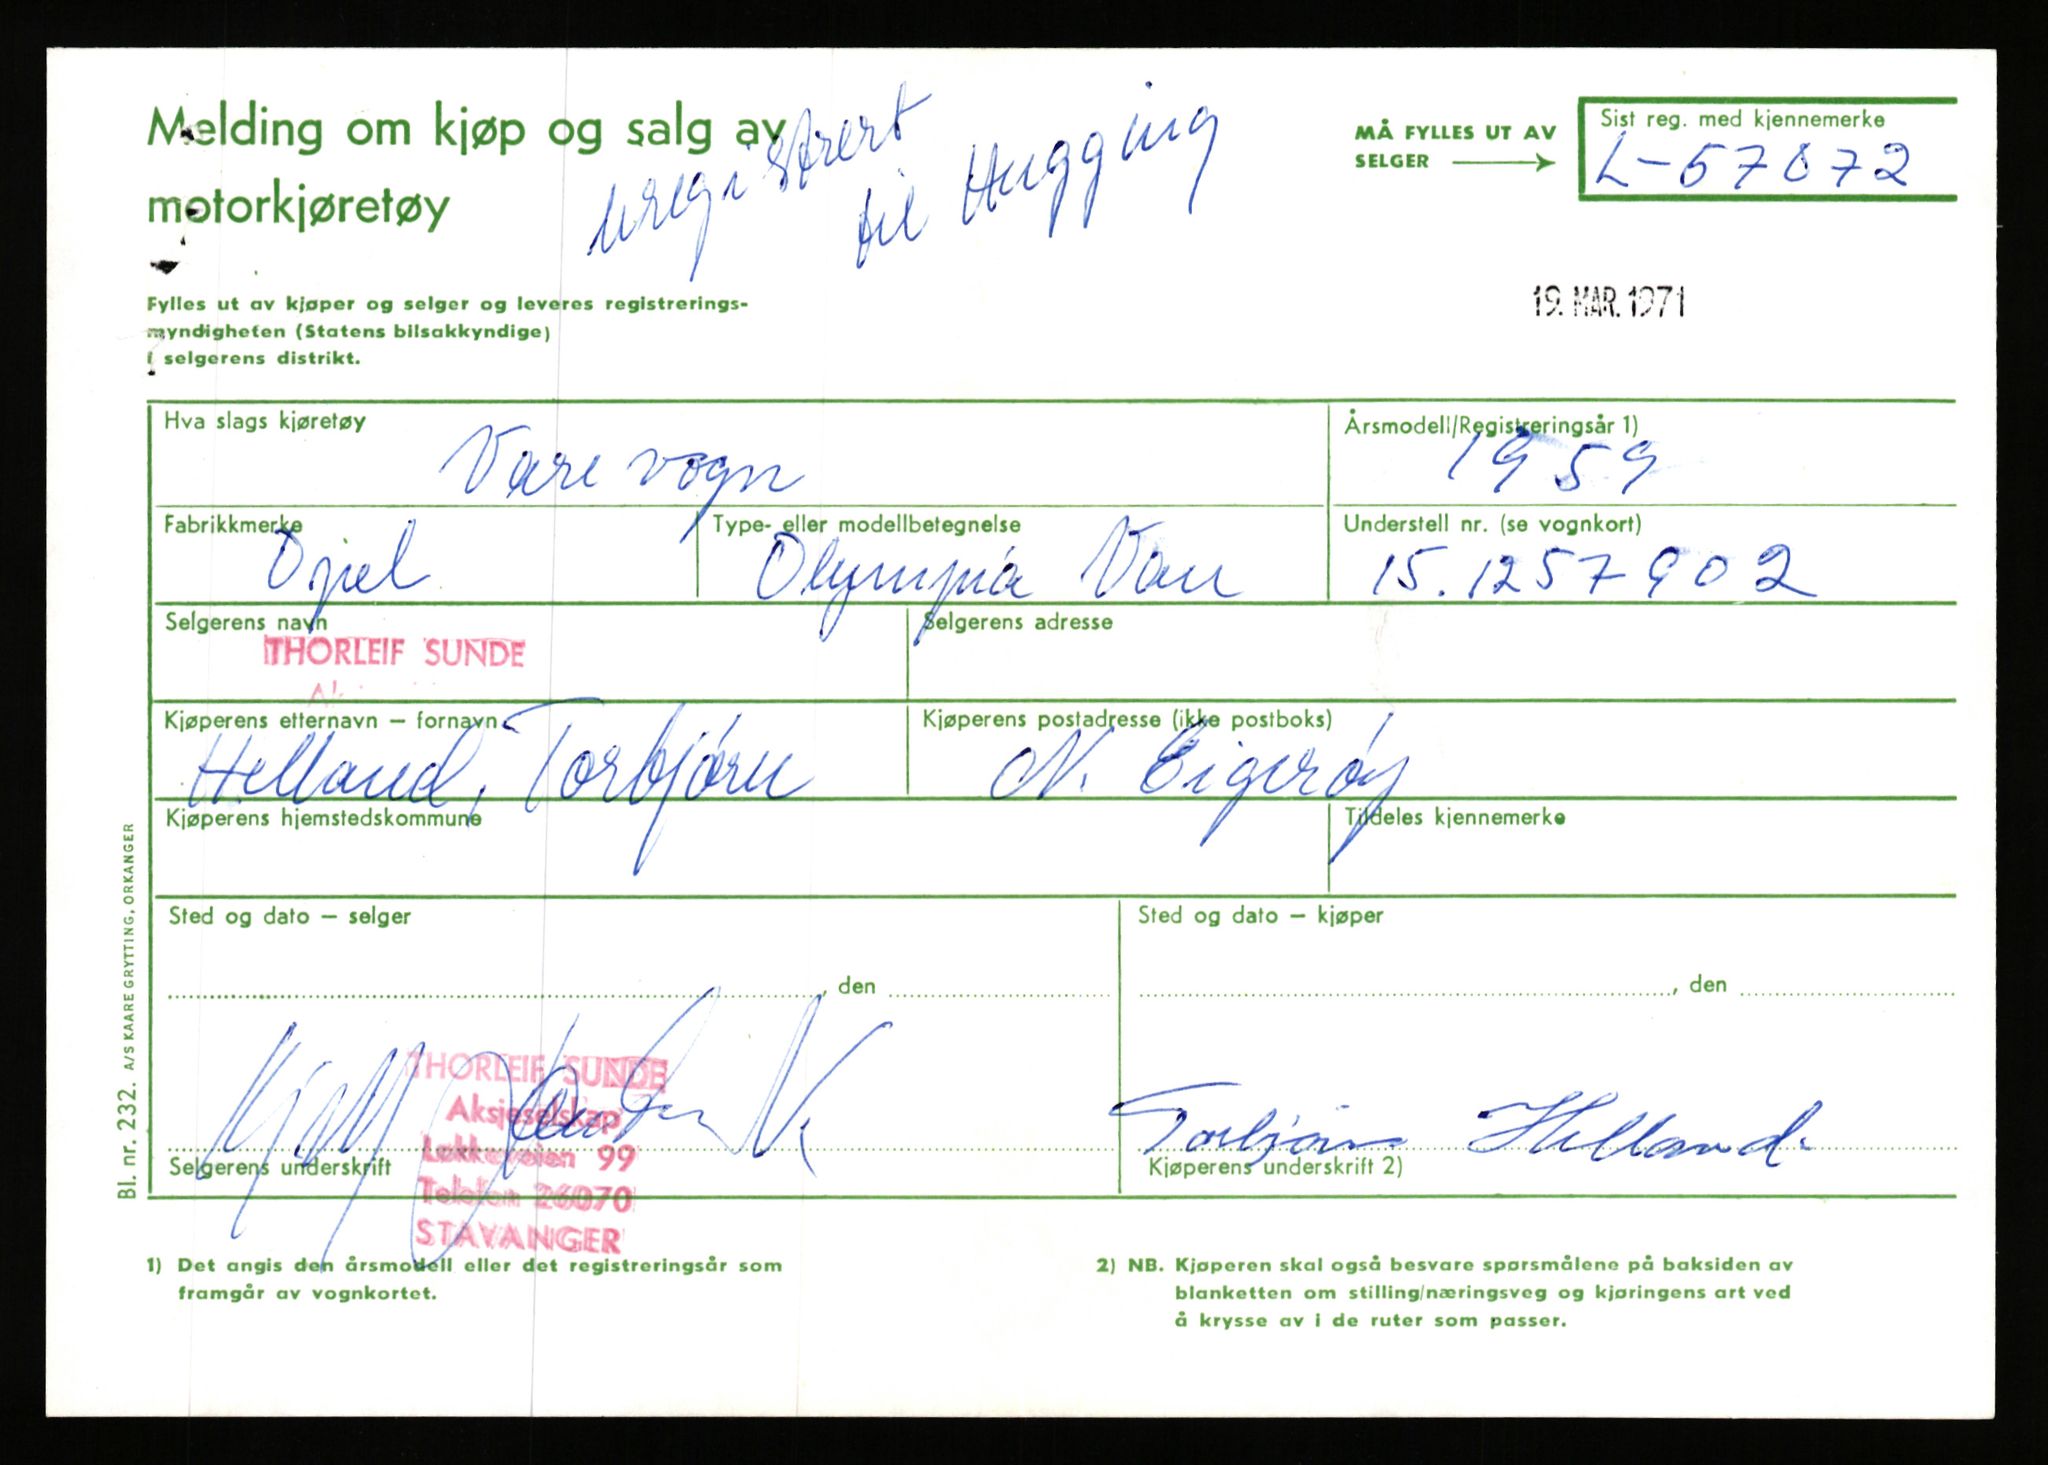 Melding om kjøp og salg av
motorkjøretøy
uregistrert
til Hugging
MÅ FYLLES UT AV
SELGER
Sist reg. med kjennemerke
L-57872
Fylles ut av kjøper og selger og leveres registrerings-
myndigheten (Statens bilsakkyndige)
i selgerens distrikt.
19. MAR. 1971
Hva slags kjøretøy
Varevogn
Årsmodell/Registreringsår 1)
1959
Fabrikkmerke
Opel
Type- eller modellbetegnelse
Olympia Van
Understell nr. (se vognkort)
15.1257902
Selgerens navn
THORLEIF SUNDE
Selgerens adresse
Kjøperens etternavn – fornavn
Helland, Torbjørn
Kjøperens postadresse (ikke postboks)
N. Eigerøy
Kjøperens hjemstedskommune
Tildeles kjennemerke
Sted og dato – selger
Sted og dato – kjøper
, den
, den
THORLEIF SUNDE
Aksjeselskap
Løkkeveien 99
Telefon 26070
STAVANGER
Torbjørn Helland.
Selgerens underskrift
Kjøperens underskrift 2)
1) Det angis den årsmodell eller det registreringsår som
framgår av vognkortet.
2) NB. Kjøperen skal også besvare spørsmålene på baksiden av
blanketten om stilling/næringsveg og kjøringens art ved
å krysse av i de ruter som passer.
Bl. nr. 232. A/S KAARE GRYTTING, ORKANGER